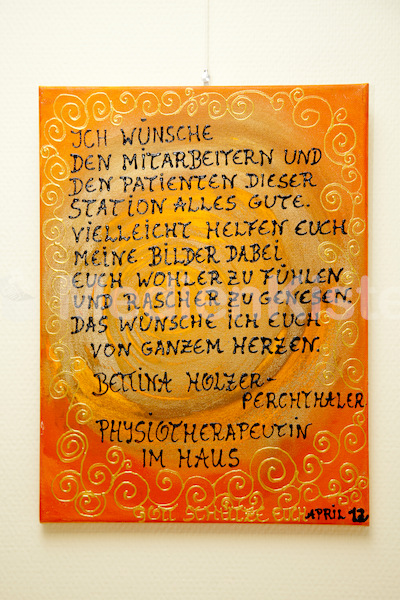 ICH WÜNSCHE
DEN MITARBEITERN UND
DEN PATIENTEN DIESER
STATION ALLES GUTE.
VIELLEICHT HELFEN EUCH
MEINE BILDER DABEI
EUCH WOHLER ZU FÜHLEN
UND RASCHER ZU GENESEN.
DAS WÜNSCHE ICH EUCH
VON GANZEM HERZEN.
BETTINA HOLZER-
PERCHTHALER
PHYSIOTHERAPEUTIN
IM HAUS
GOTT SCHÜTZE EUCH
APRIL 12